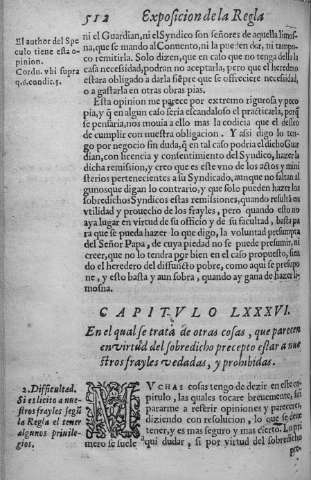 512 Exposicion de la Regla
El author del Spe
culo tiene esta o-
pinion.
Cordu. vbi supra
q.6. condic.5.
ni el Guardian, ni el Syndico son señores de aquella limos-
na, que se mando al Conuento, ni la pueden dar, ni tampo-
co remitirla. Solo dizen, que en caso que no tenga dello la
casa necessidad, podron no aceptarla, pero que el heredero
estara obligado a darla siẽpre que se ofreciere necessidad,
o a gastarla en otras obras pias.
Esta opinion me parece por extremo rigurosa y pro
pia, y q̃ en algun caso seria escandaloso el practicarla, porq̃
se pensaria, nos mouia a ello mas la codicia que el desseo
de cumplir con nuestra obligacion. Y assi digo lo ten-
go por negocio sin duda, q̃ en tal caso podria el dicho Guar
dian, con licencia y consentimiento del Syndico, hazer la
dicha remission, y creo que es este vno de los actos y mini
sterios pertenecientes a la Syndicado, aunque no faltan al
gunos que digan lo contrario, y que solo pueden hazer los
sobredichos Syndicos estas remissiones, quando resulta en
vtilidad y prouecho de los frayles, pero quando esto no
aya lugar en virtud de su officio y de su facultad, basta pa
ra que se pueda hazer lo que digo, la voluntad presumpta
del Señor Papa, de cuya piedad no se puede presumir, ni
creer, que no lo tendra por bien en el caso propuesto, sien
do el heredero del diffuncto pobre, como aqui se presupo
ne, y esto basta y aun sobra, quando ay gana de hazer li-
mosna.
CAPITVLO LXXXVI.
En el qual se trata de otras cosas, que parecen
en virtud del sobredicho precepto estar a nue
stros frayles vedadas, y prohibidas.
2. Difficultad.
Si es licito a nue-
stros frayles segũ
la Regla el tener
algunos priuile-
gios.
MVCHAS cosas tengo de dezir en este ca-
pitulo, las quales tocare breuemente, sin
pararme a resirir opiniones y pareceres,
diziendo con resolucion, lo que se deue
tener, y es mas seguro y mas cierto. Lo pri
mero se suele aqui dudar, si por virtud del sobredicho
pre-